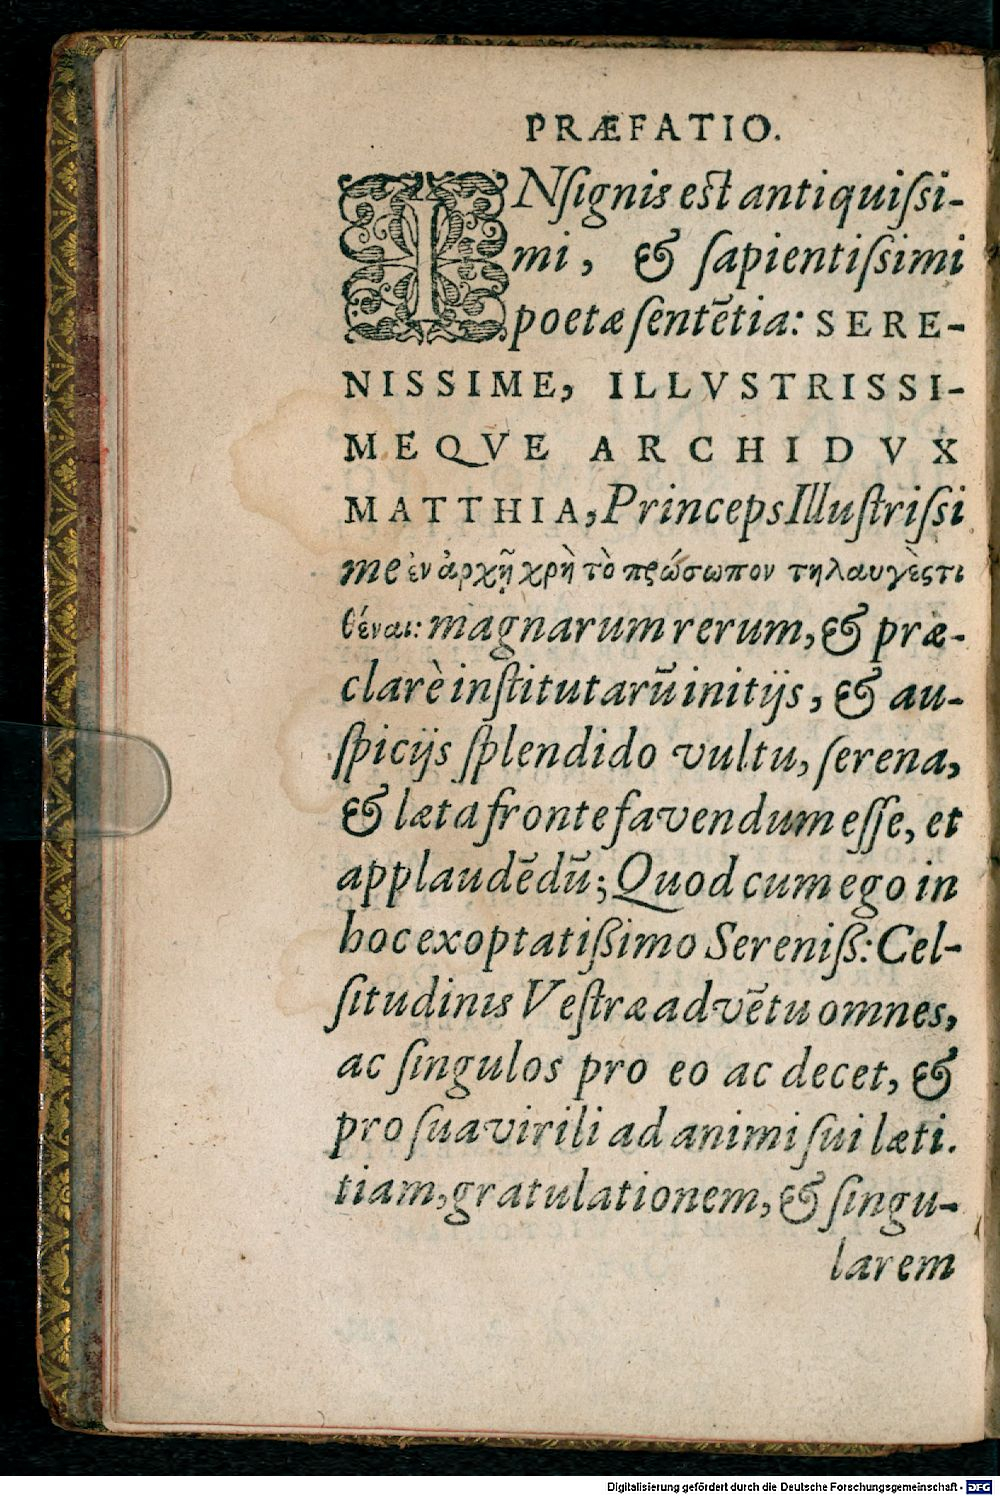 PRÆFATIO.
INſignis est antiquiſsi-
mi, & ſapientiſsimi
poetæ ſentētia: SERE-
NISSIME, ILLVSTRISSI-
MEQVE ARCHIDVX
MATTHIA, Princeps Illuſtriſsi
me ἐν ἀρχῇ χρὴ τὸ πρώσωπον τηλαυγὲςτι
θέναι: magnarum rerum, & præ-
clarè inſtitutarū initijs, & au-
ſpicijs ſplendido vultu, ſerena,
& læta fronte favendum eſſe, et
applaudēdū; Quod cum ego in
hoc exoptatiſsimo Sereniſs: Cel-
ſitudinis Veſtræ advētu omnes,
ac ſingulos pro eo ac decet, &
pro ſua virili ad animi ſui læti.
tiam, gratulationem, & ſingu-
larem
Digitalisierung gefördert durch die Deutsche Forschungsgemeinschaft - DFG